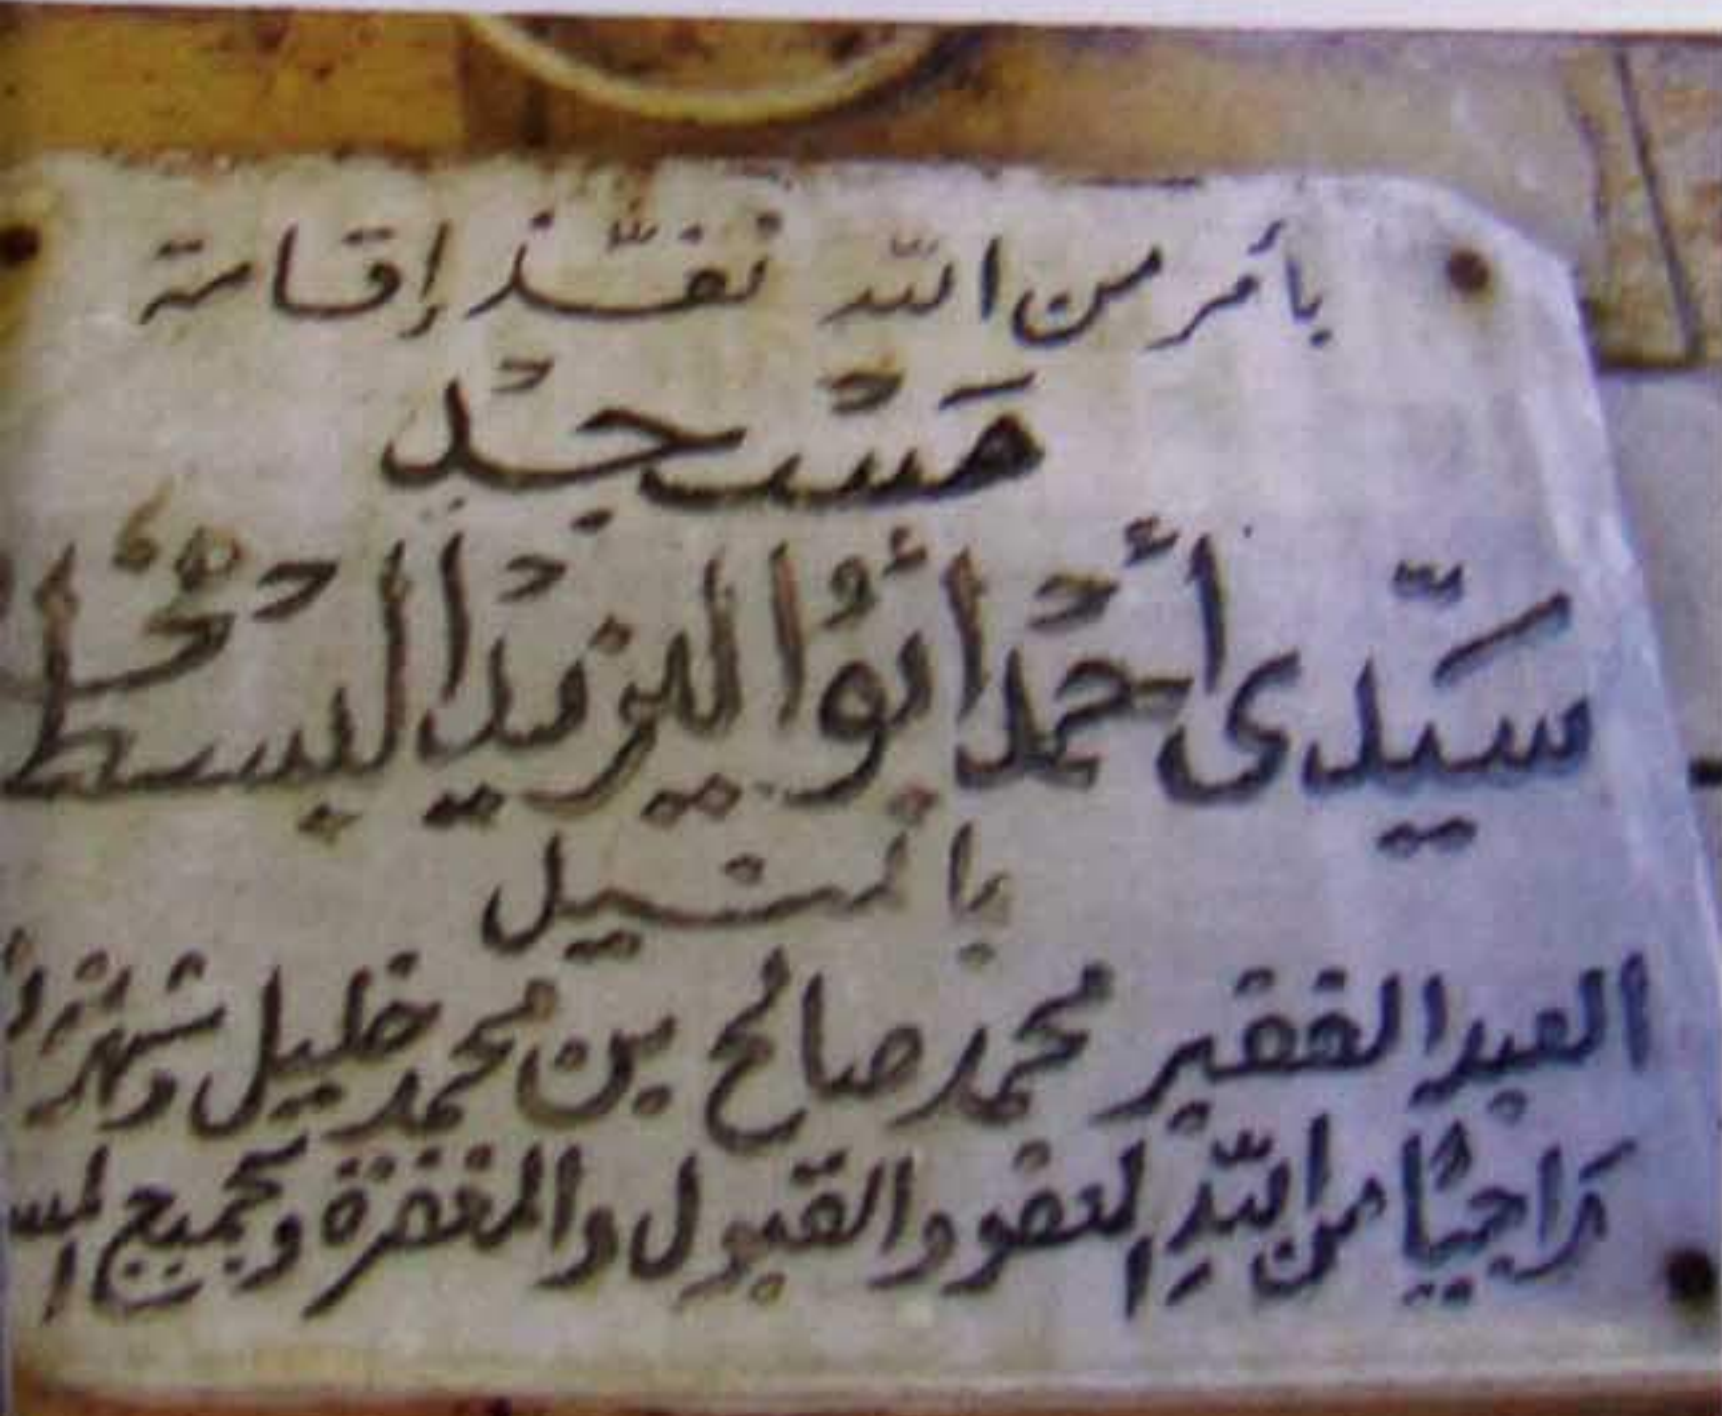 بأمر من اللّه نفّذ إقامة
مَسْجِدْ
سَيّدى أحْمد أبُوا اليزيدْ البسط
بالمنشيل
العبد الفقير محمد صالح بن محمد خليل وشهرته
رَاجيًا من اللّهِ العفو والقبول والمغفرة وجميع